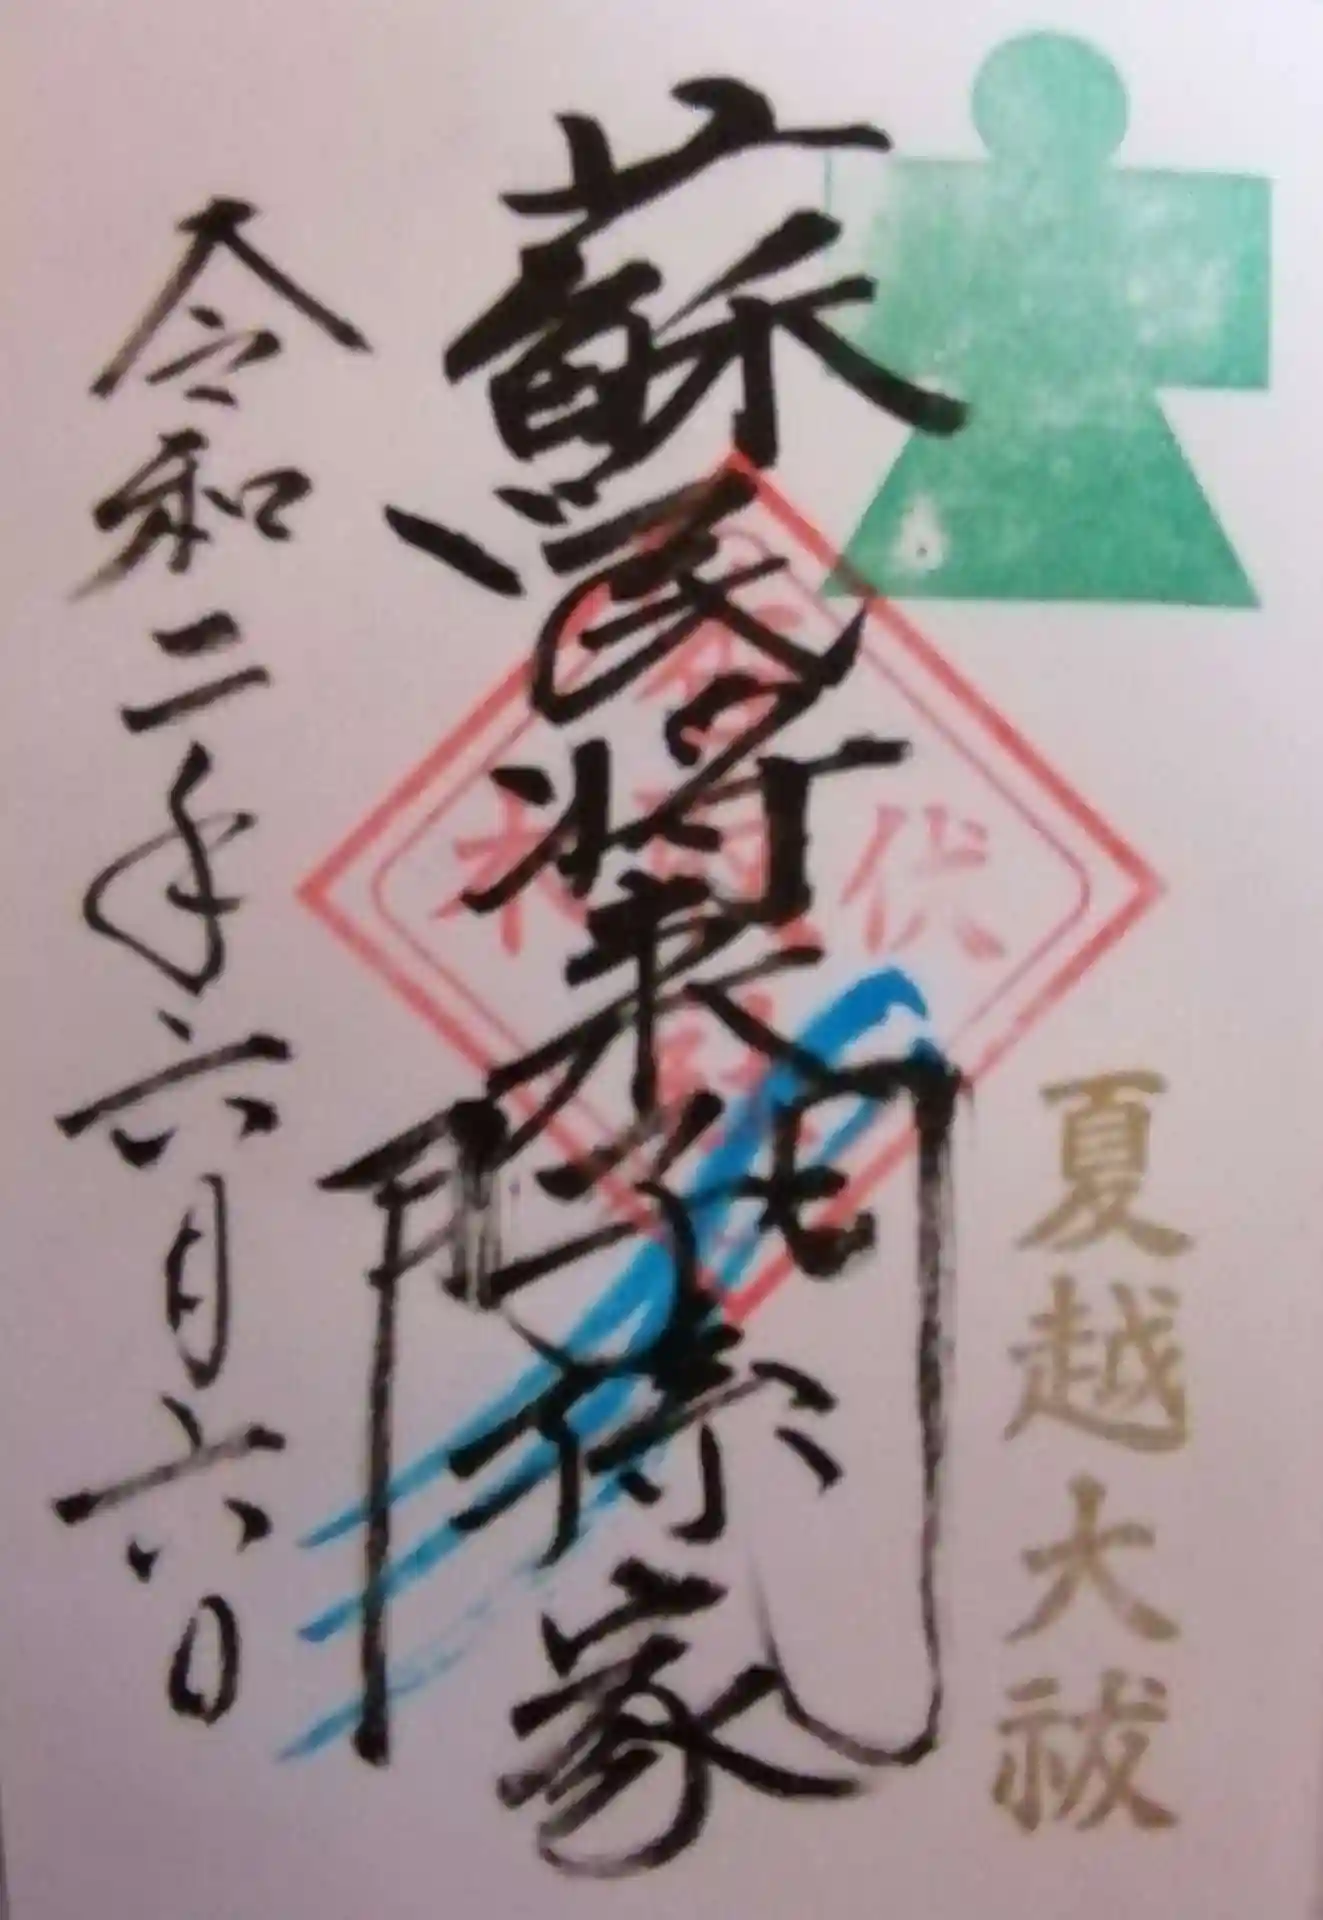 夏越大祓
蘇民将来子孫家門
伏
令和二年六月六日